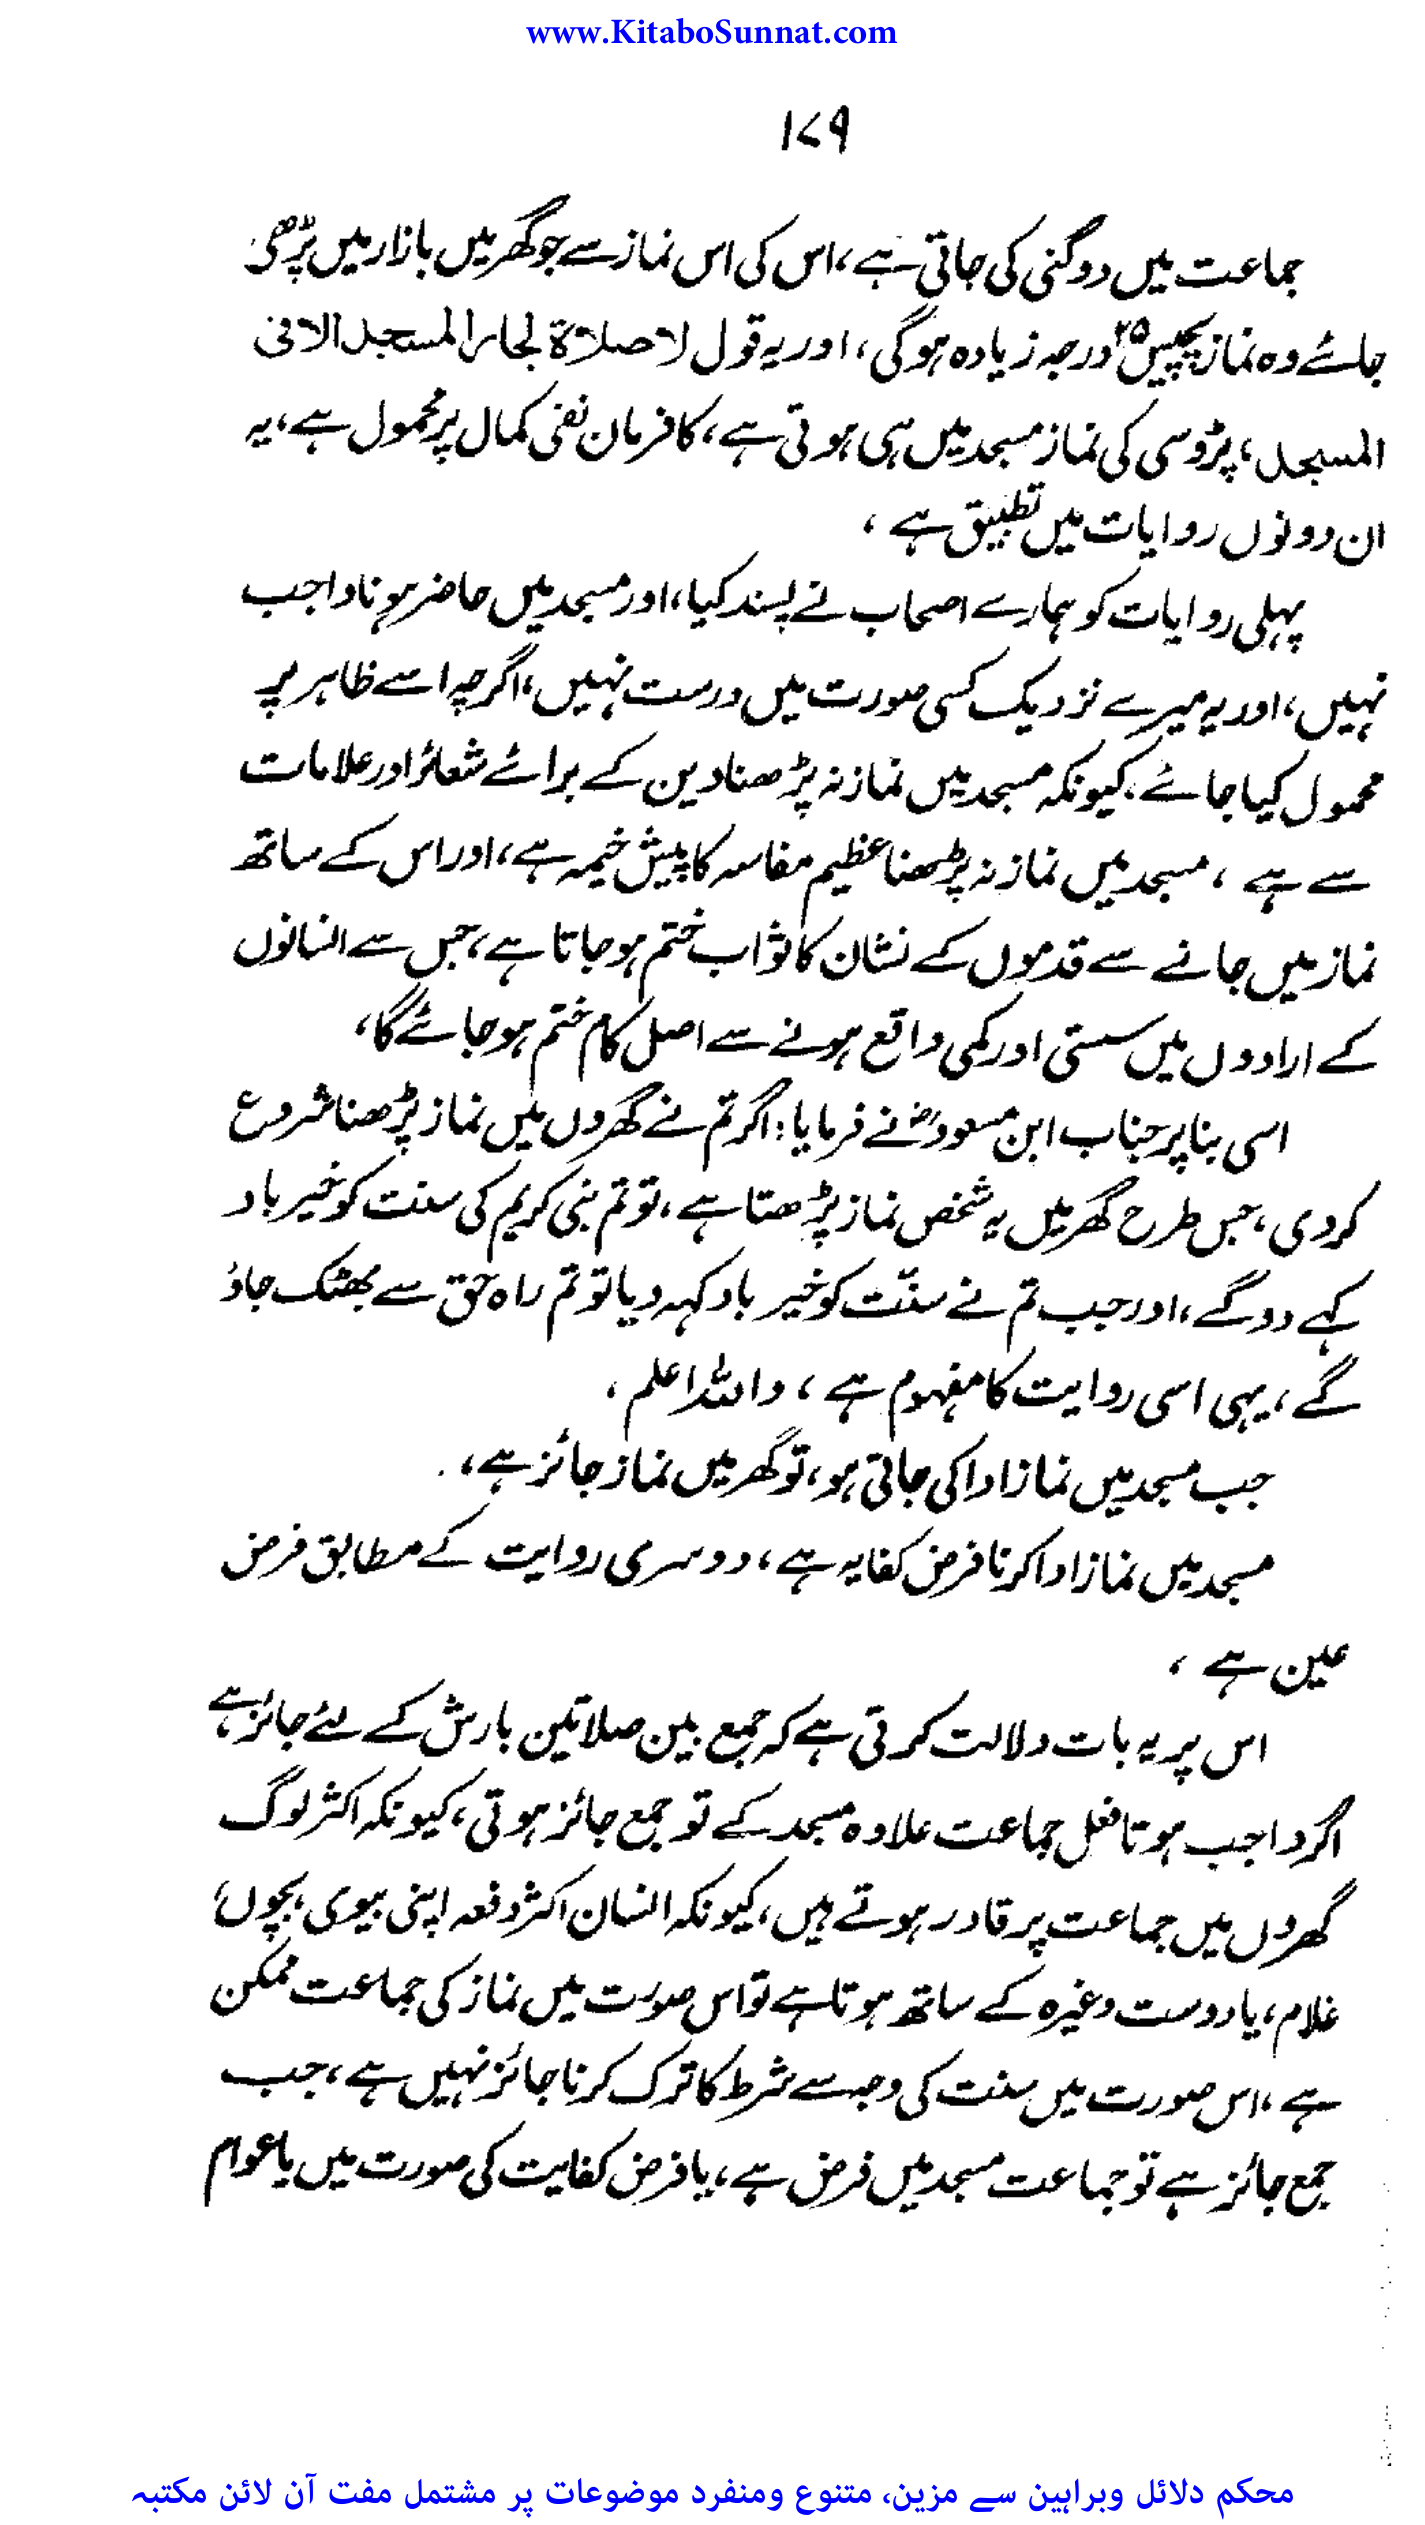 www.KitaboSunnat.com
۱۷۹
جماعت میں دوگنی کی جاتی ہے، اس کی اس نماز سے جو گھر میں بازار میں پڑھی
جائے وہ نماز پچیس ۲۵ درجہ زیادہ ہوگی، اور یہ قول لا صلاۃ لجار المسجد الا فی
المسجد، پڑوسی کی نماز مسجد میں ہی ہوتی ہے، کا فرمان نفی کمال پر محمول ہے، یہ
ان دونوں روایات میں تطبیق ہے ،
پہلی روایات کو ہمارے اصحاب نے پسند کیا، اور مسجد میں حاضر ہونا واجب
نہیں، اور یہ میرے نزدیک کسی صورت میں درست نہیں، اگرچہ اسے ظاہر پر
محمول کیا جائے، کیونکہ مسجد میں نماز نہ پڑھنا دین کے برائے شعائر اور علامات
سے ہے ، مسجد میں نماز نہ پڑھنا عظیم مفاسد کا پیش خیمہ ہے، اور اس کے ساتھ
نماز میں جانے سے قدموں کے نشان کا ثواب ختم ہو جاتا ہے، جس سے انسانوں
کے ارادوں میں سستی اور کمی واقع ہونے سے اصل کام ختم ہو جائے گا،
اسی بنا پر جناب ابن مسعودؓ نے فرمایا: اگر تم نے گھروں میں نماز پڑھنا شروع
کر دی، جس طرح گھر میں یہ شخص نماز پڑھتا ہے، تو تم نبی کریم کی سنت کو خیر باد
کہے دو گے، اور جب تم نے سنّت کو خیر باد کہہ دیا تو تم راہ حق سے بھٹک جاؤ
گے، یہی اسی روایت کا مفہوم ہے ، واللہ اعلم ،
جب مسجد میں نماز ادا کی جاتی ہو، تو گھر میں نماز جائز ہے،
مسجد میں نماز ادا کرنا فرض کفایہ ہے، دوسری روایت کے مطابق فرض
عین ہے ،
اس پر یہ بات دلالت کرتی ہے کہ جمع بین صلاتین بارش کے لئے جائز ہے
اگر واجب ہوتا فعل جماعت علاوہ مسجد کے تو جمع جائز ہوتی، کیونکہ اکثر لوگ
گھروں میں جماعت پر قادر ہوتے ہیں، کیونکہ انسان اکثر دفعہ اپنی بیوی، بچوں،
غلام، یا دوست وغیرہ کے ساتھ ہوتا ہے تو اس صورت میں نماز کی جماعت ممکن
ہے، اس صورت میں سنت کی وجہ سے شرط کا ترک کرنا جائز نہیں ہے، جب
جمع جائز ہے تو جماعت مسجد میں فرض ہے، یا فرض کفایت کی صورت میں یا عوام
محکم دلائل وبراہین سے مزین، متنوع ومنفرد موضوعات پر مشتمل مفت آن لائن مکتبہ